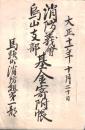 大正十五年十月二十日
消防義會
烏山支部
基金寄附帳
烏山消防組第一部